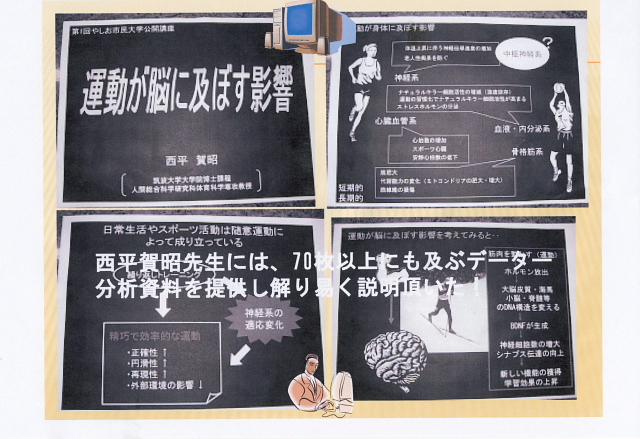 第1回やしお市民大学公開講座
運動が脳に及ぼす影響
西平 賀昭
筑波大学大学院博士課程
人間総合科学研究科体育科学専攻教授
動が身体に及ぼす影響
体温上昇に伴う神経伝導速度の増加
老人性痴呆を防ぐ
中枢神経系
?
神経系
ナチュラルキラー細胞活性の増減(強度依存)
運動の習慣化でナチュラルキラー細胞活性が高まる
ストレスホルモンの分泌
心臓血管系
血液・内分泌系
心拍数の増加
スポーツ心臓
安静心拍数の低下
骨格筋系
筋肥大
代謝能力の変化(ミトコンドリアの肥大・増大)
筋線維の損傷
短期的
長期的
日常生活やスポーツ活動は随意運動に
よって成り立っている
繰り返しトレーニング
神経系の
適応変化
精巧で効率的な運動
・正確性 ↑
・円滑性 ↑
・再現性 ↑
・外部環境の影響 ↓
運動が脳に及ぼす影響を考えてみると‥
筋肉を動かす(運動)
ホルモン放出
大脳皮質・海馬
小脳・脊髄等
のDNA構造を変える
BDNFが生成
神経細胞数の増大
シナプス伝達の向上
新しい機能の獲得
学習効果の上昇
西平賀昭先生には、70枚以上にも及ぶデーター
分析資料を提供し解り易く説明頂いた!